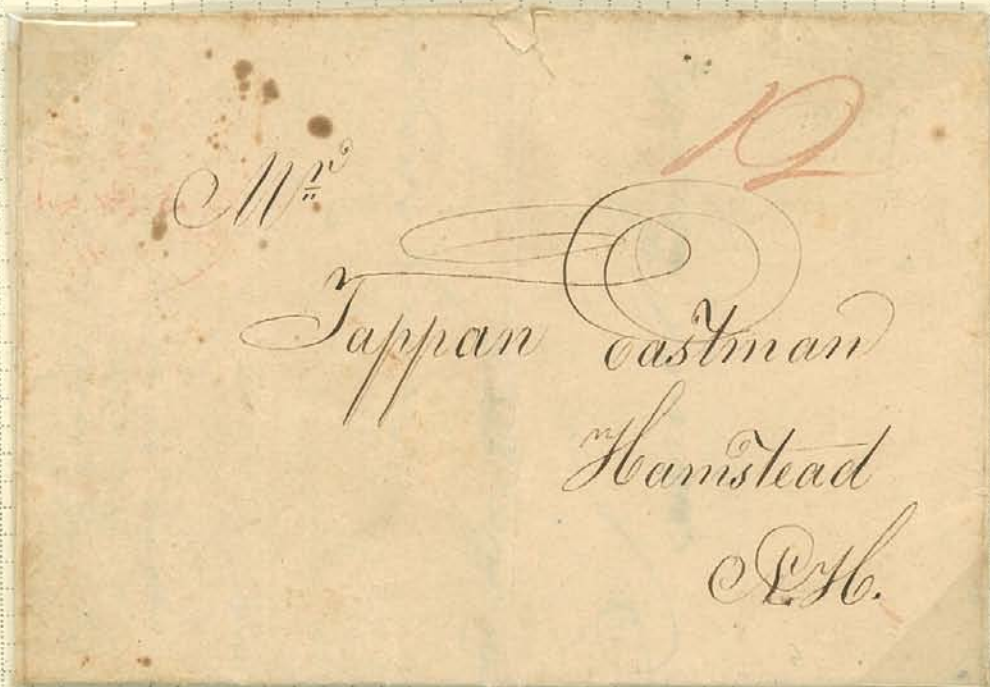 12
Mr
Tappan Eastman
Hamstead
N.H.